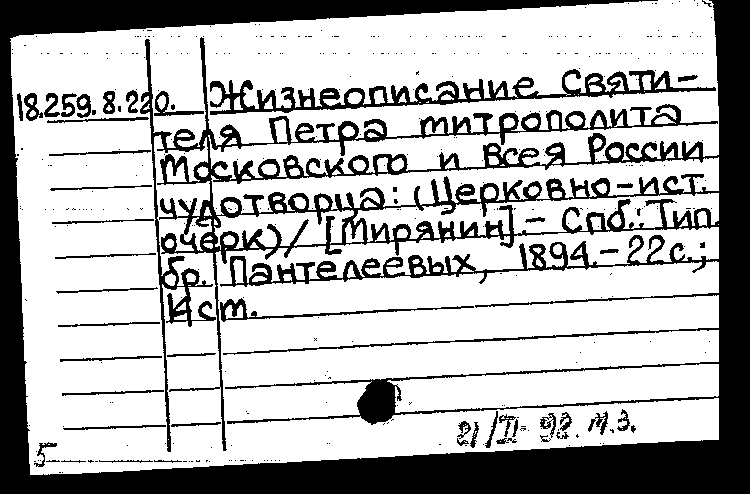 18.259.8.220. Жизнеописание Святи-
теля Петра митрополита
Московского и всея России
чудотворца: (Церковно-ист.
очерк) / [Мирянин]. - Спб.: Тип.
бр. Пантелеевых, 1894. - 22 с.;
Ист.
21/II- 92. М.З.
5